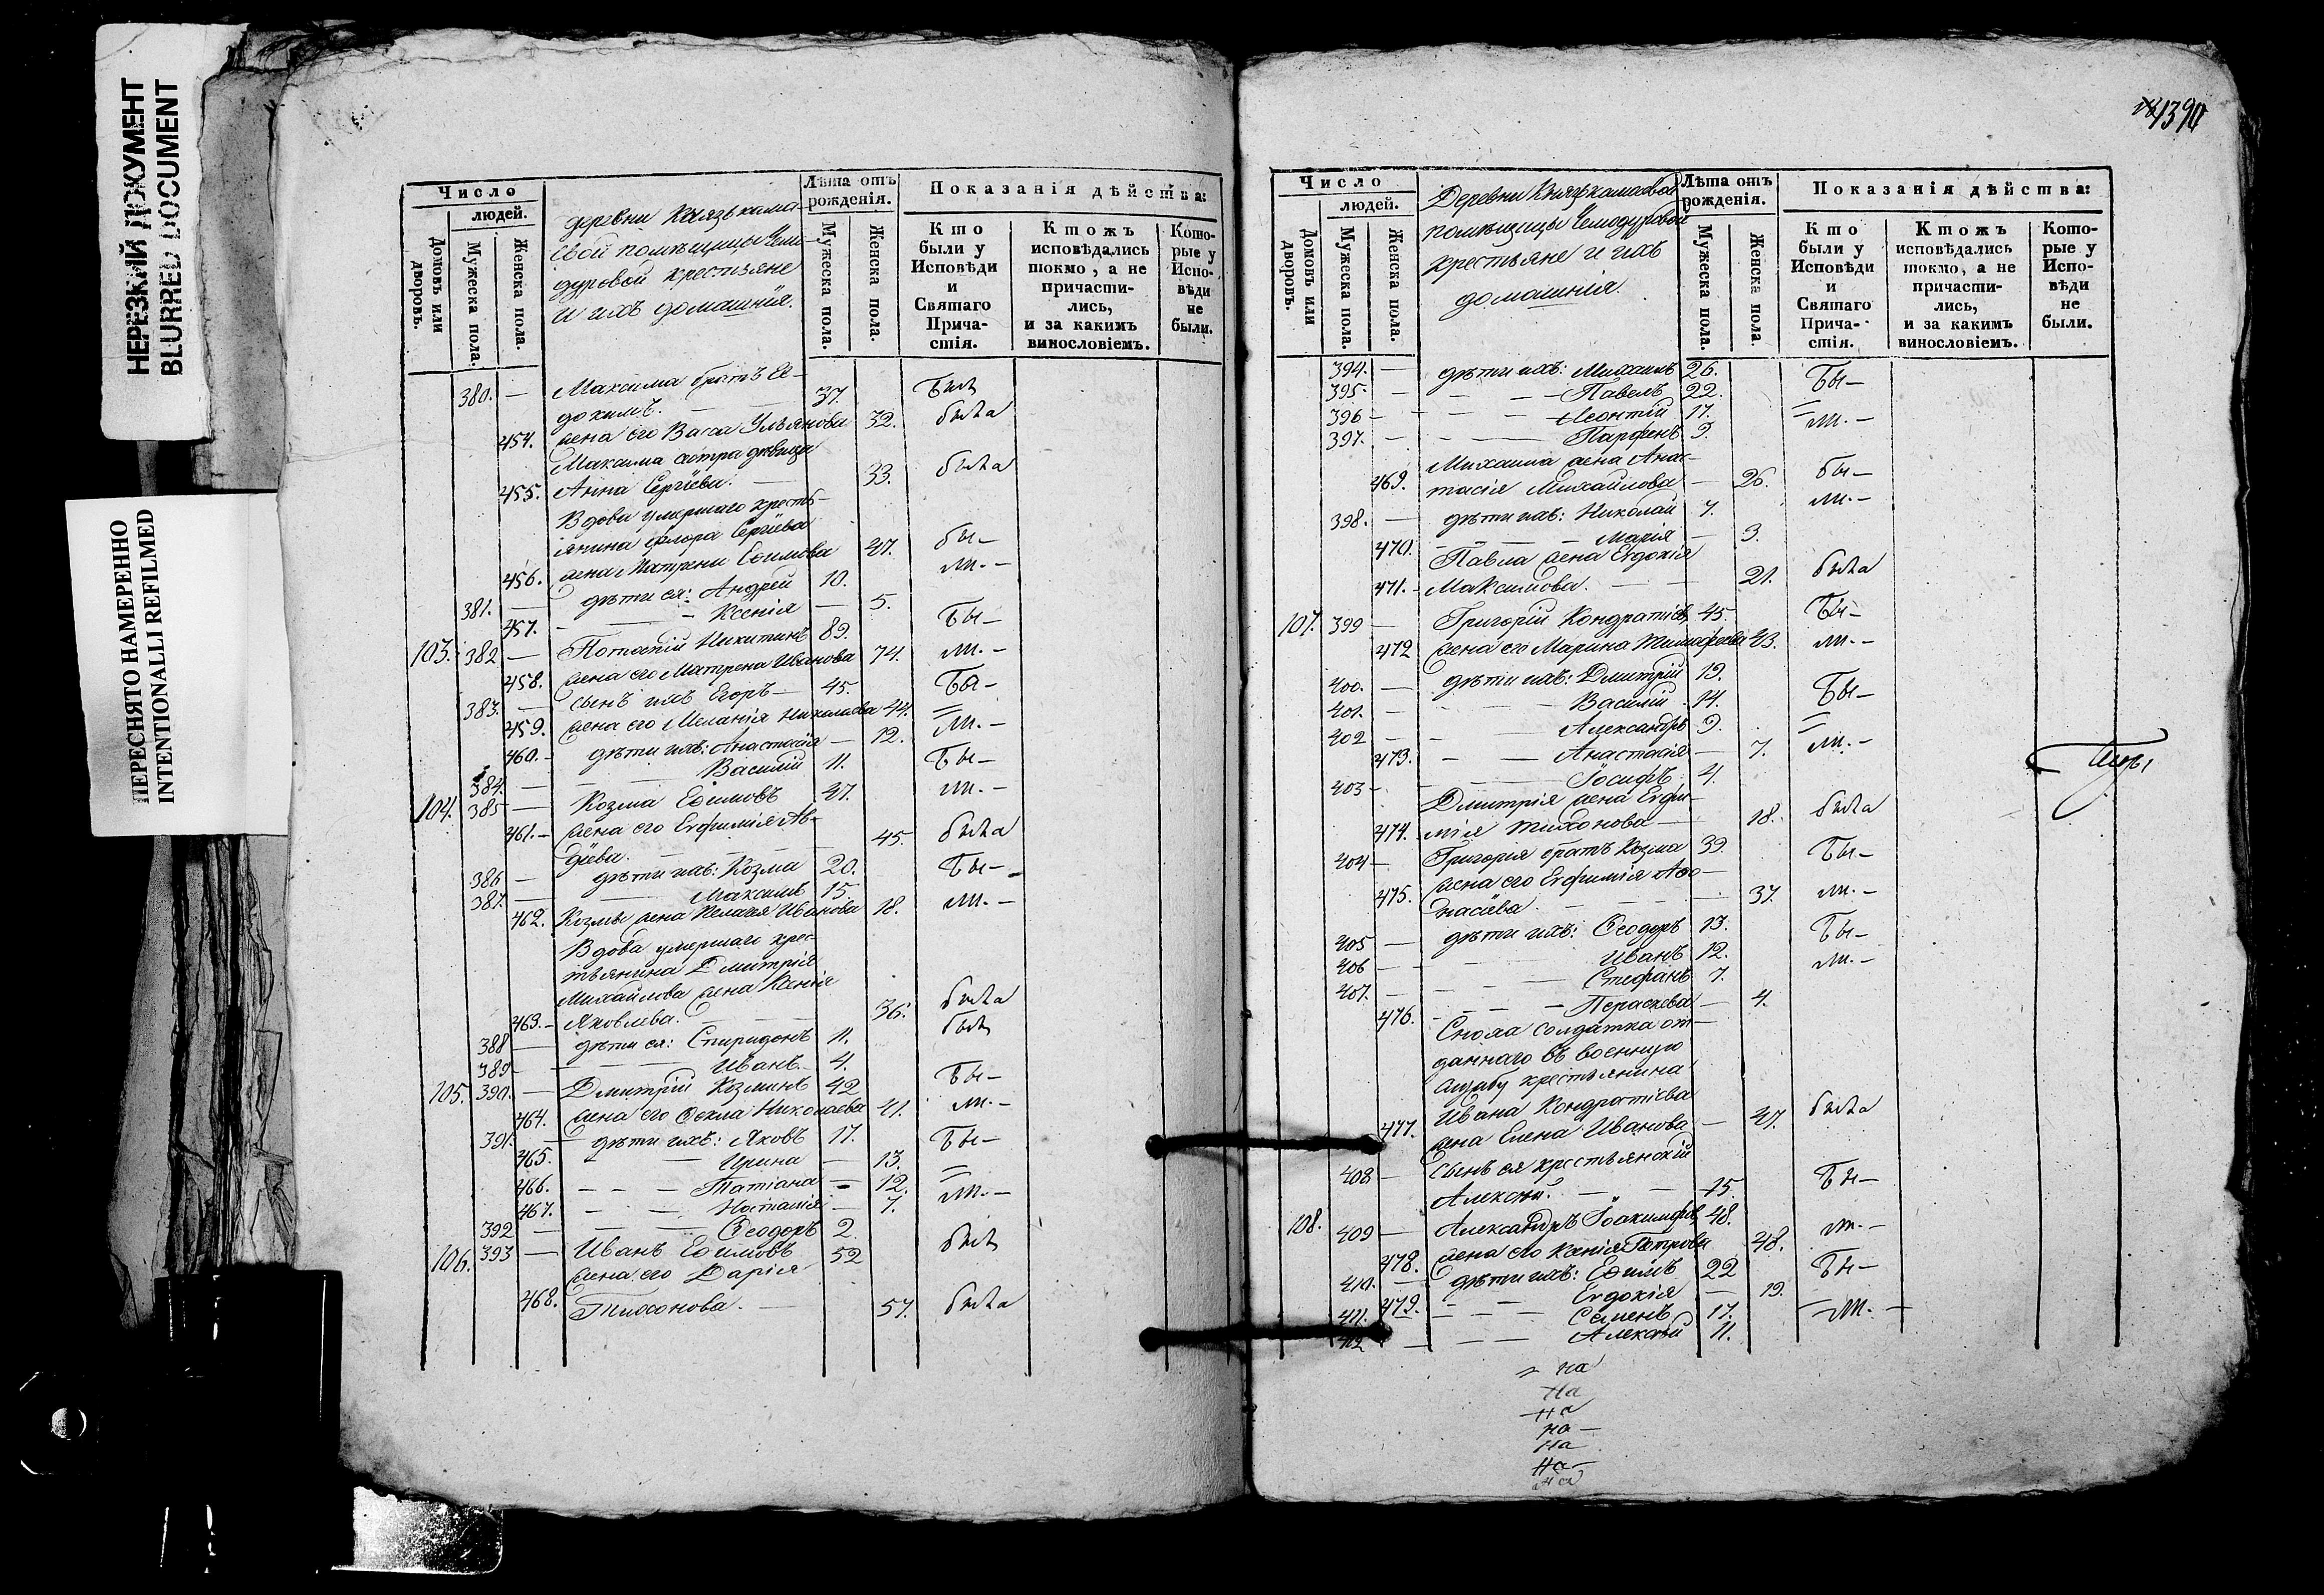 НЕРЕЗКИЙ ДОКУМЕНТ
BLURRED DOCUMENT
ПЕРЕСНЯТО НАМЕРЕННО
INTENTIONALLI REFILMED
Число
людей.
Домовъ или дворовъ.
Мужеска пола.
Женска пола.
деревни Князькама-
свой помѣщицы Чемо-
дуровой крестьяне
и ихъ домашнія.
Лѣта отъ рожденія.
Мужеска пола.
Женска пола.
Показанія дѣйства:
Кто были у Исповѣди и Святаго Прича- стія.
Ктожъ исповѣдались токмо, а не причасти- лись, и за какимъ винословіемъ.
Кото- рые у Испо- вѣди не были.
380. — Максима братъ Ев-
докимъ. — 37. былъ
454. жена его Васса Ульянова 32. была
Максима сестра девица
455. Анна Сергіева. — 33. была
Вдова умершаго кресть-
янина Флора Сергіева
456. жена Матрена Ефимова 47. бы-
381. — дѣти ея: Андрей 10. ли. —
457. — — Ксенія — 5.
103. 382 — Потапій Никитинъ 89. бы-
458. жена его Матрена Иванова 74. ли. —
383. — сынъ ихъ Егоръ — 45. бы-
459. жена его Меланія Николаева 44.
460. — дѣти ихъ: Анастасія — 12. ли. —
384. — — Василій 11. бы-
104. 385 — Козма Ефимовъ 47. ли. —
461. — жена его Евфимія Ав-
діева. — 45. была
386 — дѣти ихъ: Козма 20. бы-
387. — Максимъ 15.
462. Козмы жена Пелагея Иванова 18. ли. —
Вдова умершаго крес-
тьянина Дмитрія
Михайлова жена Ксенія
463. — Яковлева. — 36. была
388 — дѣти ея: Спиридонъ 11. былъ
389 — Иванъ. 4.
105. 390. — Дмитрій Козминъ 42 бы-
464. жена его Фекла Николаева 41. ли. —
391. — дѣти ихъ: Яковъ 17. бы-
465. — Ирина — 13.
466. — — Татіана — 12.
467. — — Наталія — 7. ли. —
392 — Феодоръ 2.
106. 393 — Иванъ Ефимовъ 52 былъ
жена его Дарія
468. Тихонова. — 57. была
1390
Число
людей.
Домовъ или дворовъ.
Мужеска пола.
Женска пола.
Деревни Князькамасовой
помѣщицы Чемодуровой
крестьяне и ихъ
домашнія.
Лѣта отъ рожденія.
Мужеска пола.
Женска пола.
Показанія дѣйства:
Кто были у Исповѣди и Святаго Прича- стія.
Ктожъ исповѣдались токмо, а не причасти- лись, и за какимъ винословіемъ.
Кото- рые у Испо- вѣди не были.
394. — дѣти ихъ: Михаилъ 26. Бы-
395 — — Павелъ 22.
396 — — Леонтій 17. ли. —
397. — — Парфенъ 9.
Михаила жена Анас-
469. тасія Михайлова — 26. бы-
398. — дѣти ихъ: Николай 7. ли. —
470. — — Марія — 3.
Павла жена Евдокія
471. — Максимова. — 21. была
107. 399 — Григорій Кондратіевъ 45. бы-
472 жена его Марина Тимофеева 43. ли. —
400. — дѣти ихъ: Дмитрій 19.
401. — Василій 14. бы-
402 — — Александръ 9.
473. — — Анастасія — 7. ли. —
403 — — Іосифъ 4.
Дмитрія жена Евфи-
474. мія Тихонова — 18. была
404 — Григорія братъ Козма 39. бы-
475. жена его Евфимія Афо-
насіева. — 37. ли. —
405 — дѣти ихъ: Феодоръ 13. бы-
406 — Иванъ 12.
407. — Стефанъ 7. ли. —
476. — Параскева — 4.
Сноха солдатка от-
даннаго въ военную
службу крестьянина
Ивана Кондратіева
477. жена Елена Иванова — 47. была
408 — сынъ ея крестьянскій
Алексѣй. — 15. бы-
108. 409 — Александръ Іоакимовъ 48. ли. —
478. жена его Ксенія Петрова 48.
410. — дѣти ихъ: Ефимъ 22 бы-
479. — — Евдокія — 19.
411. — Семенъ 17. ли. —
412 — — Алексѣй 11.
на
на
на
на
на
на
на